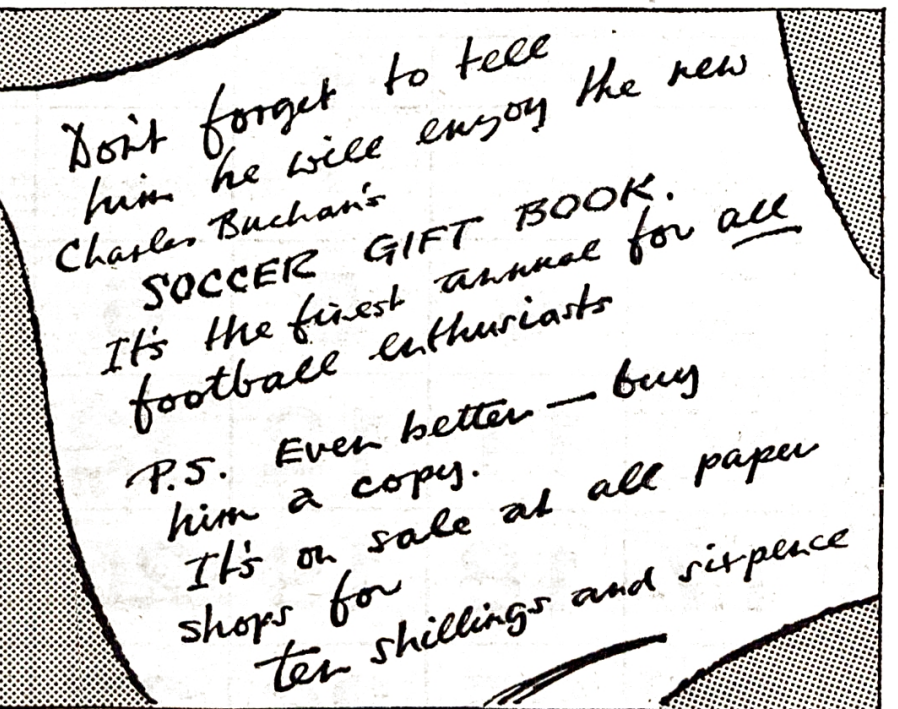 Don't forget to tell
him he will enjoy the new
Charles Buchan's
SOCCER GIFT BOOK.
It's the finest annual for all
football enthusiasts
P.S. Even better — buy
him a copy.
It's on sale at all paper
shops for
ten shillings and sixpence